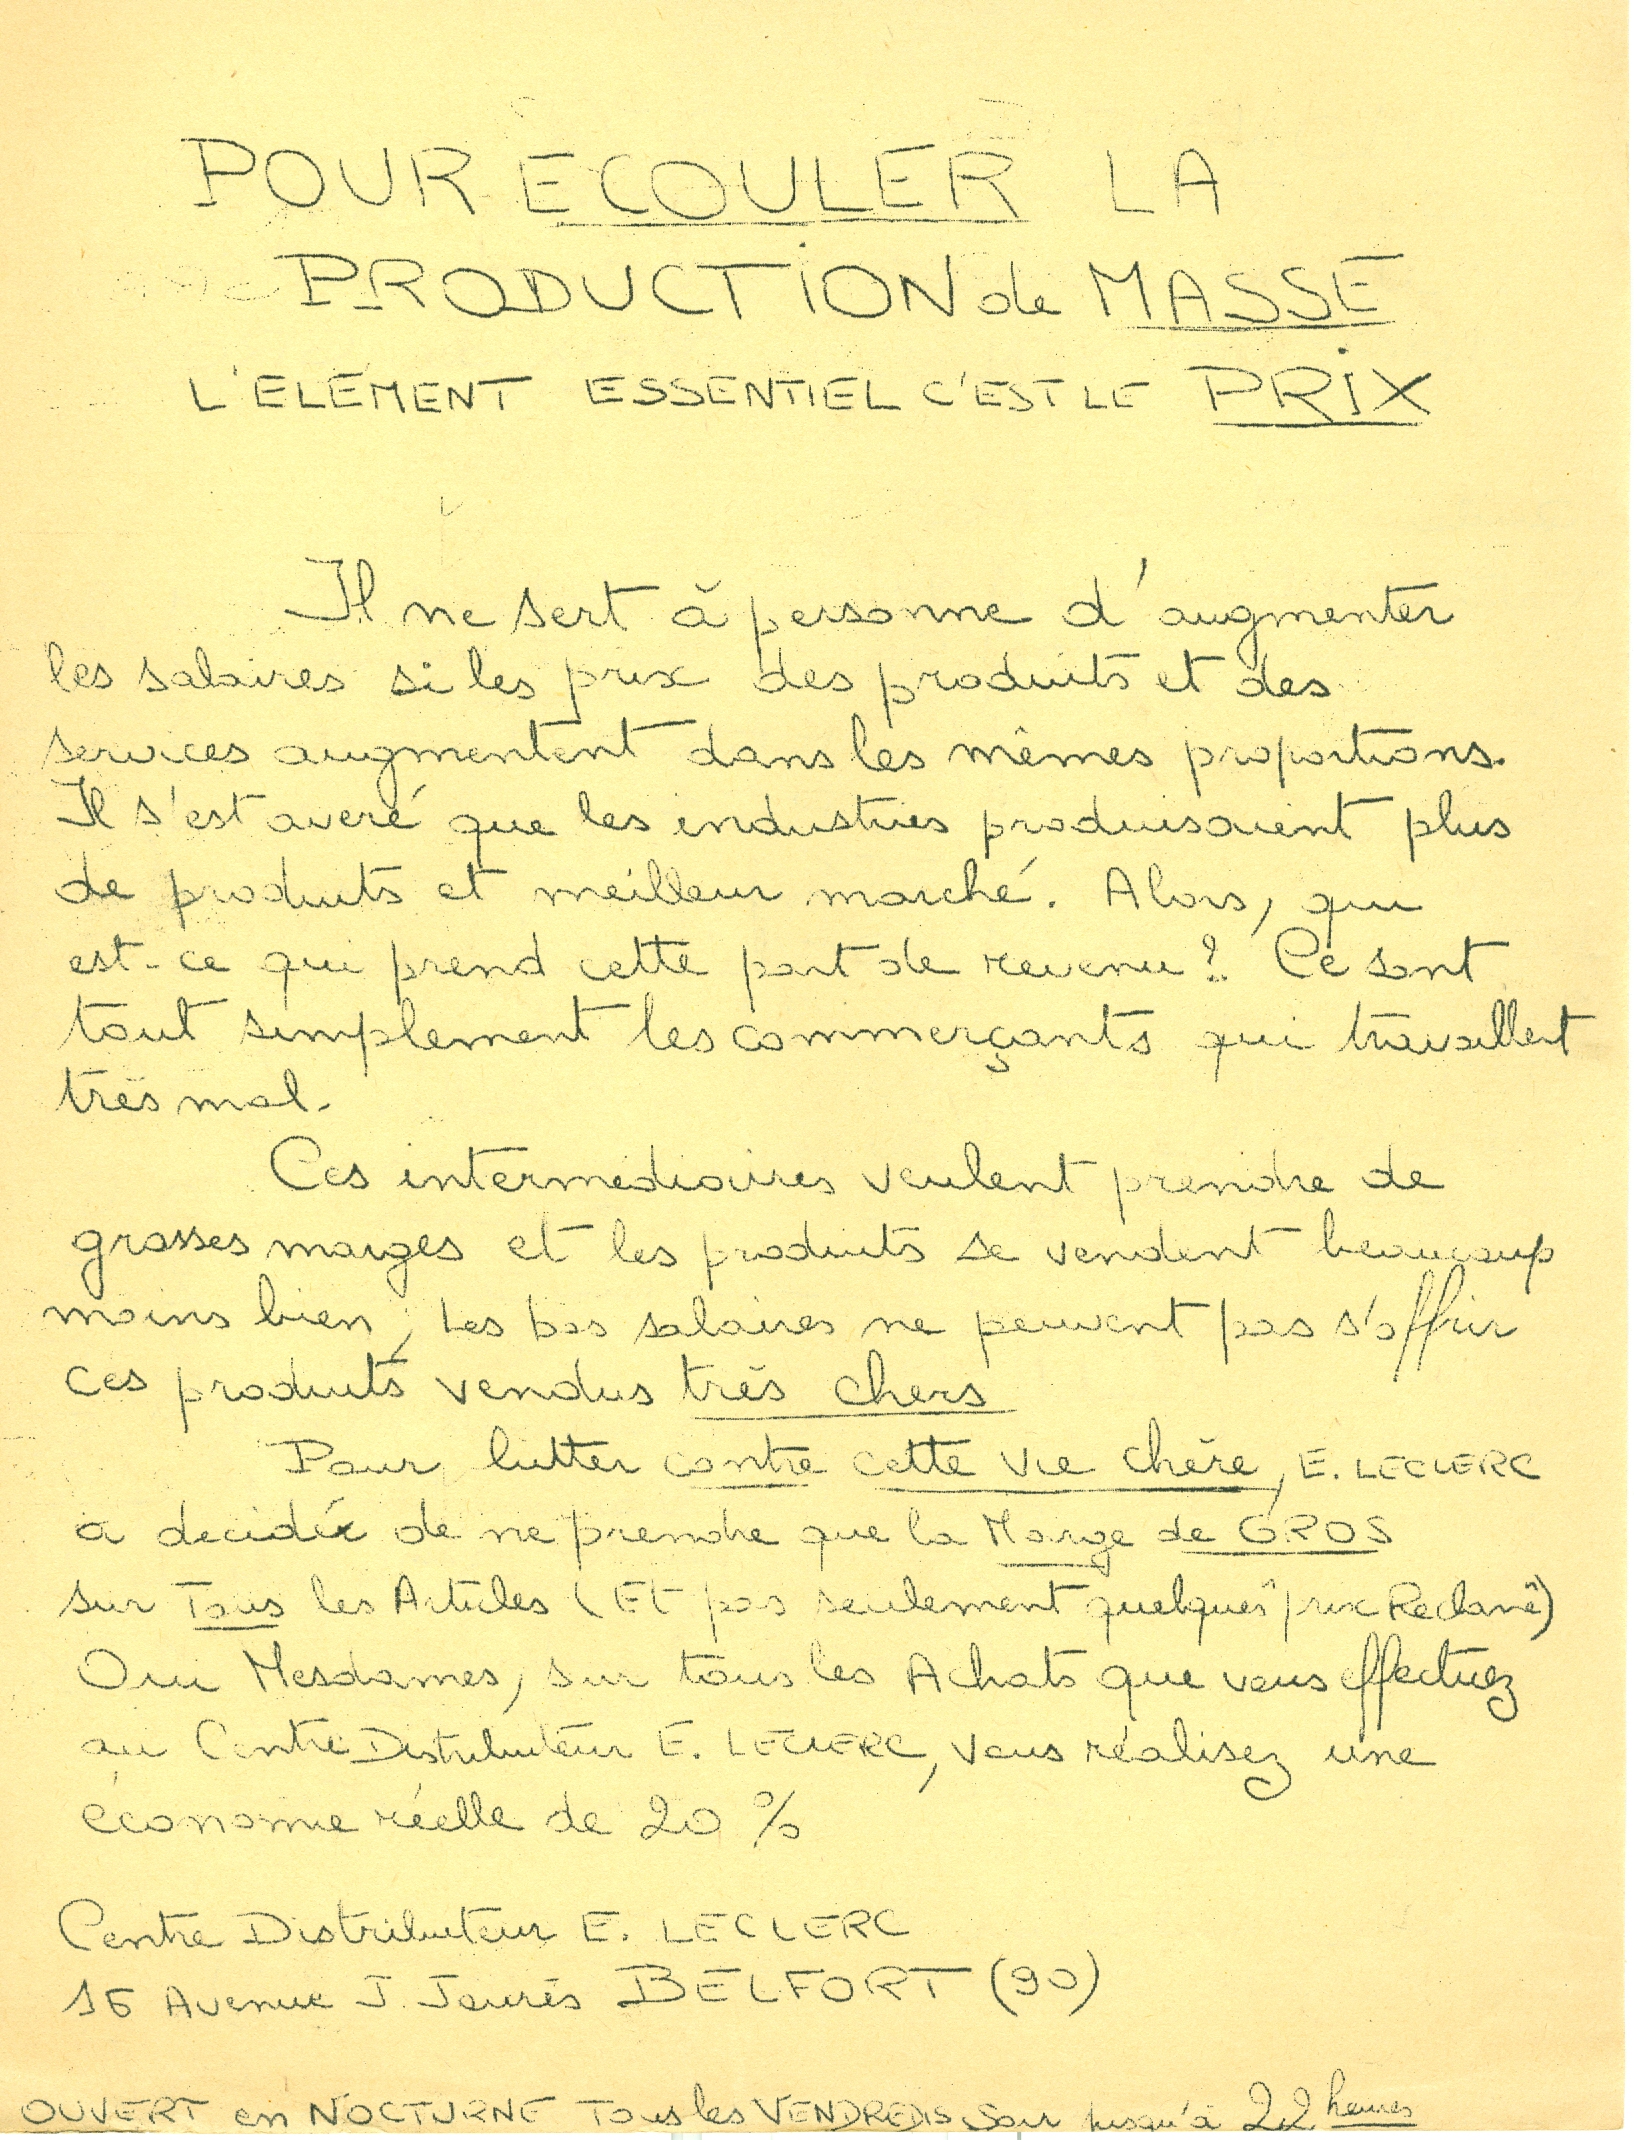 POUR ECOULER LA
PRODUCTiON de MASSE
L'ELEMENT ESSENTIEL C'EST LE PRiX
Il ne sert à personne d'augmenter
les salaires si les prix des produits et des
services augmentent dans les mêmes proportions.
Il s'est averé que les industries produisaient plus
de produits et meilleur marché. Alors, qui
est-ce qui prend cette part de revenu ? Ce sont
tout simplement les commerçants qui travaillent
très mal.
Ces intermediaires veulent prendre de
grosses marges et les produits se vendent beaucoup
moins bien, Les bas salaires ne peuvent pas s'offrir
ces produits vendus très chers
Pour lutter contre cette vie chère, E. LECLERC
a decidé de ne prendre que la Marge de GROS
sur Tous les Articles (Et pas seulement quelques prix Reclame)
Oui Mesdames, sur tous les Achats que vous effectuez
au Centre Distributeur E. LECLERC, vous réalisez une
économie réelle de 20 %
Centre Distributeur E. LECLERC
16 Avenue J. Jaurès BELFORT (90)
OUVERT en NOCTURNE Tous les VENDREDIS Soir jusqu'à 22 heures